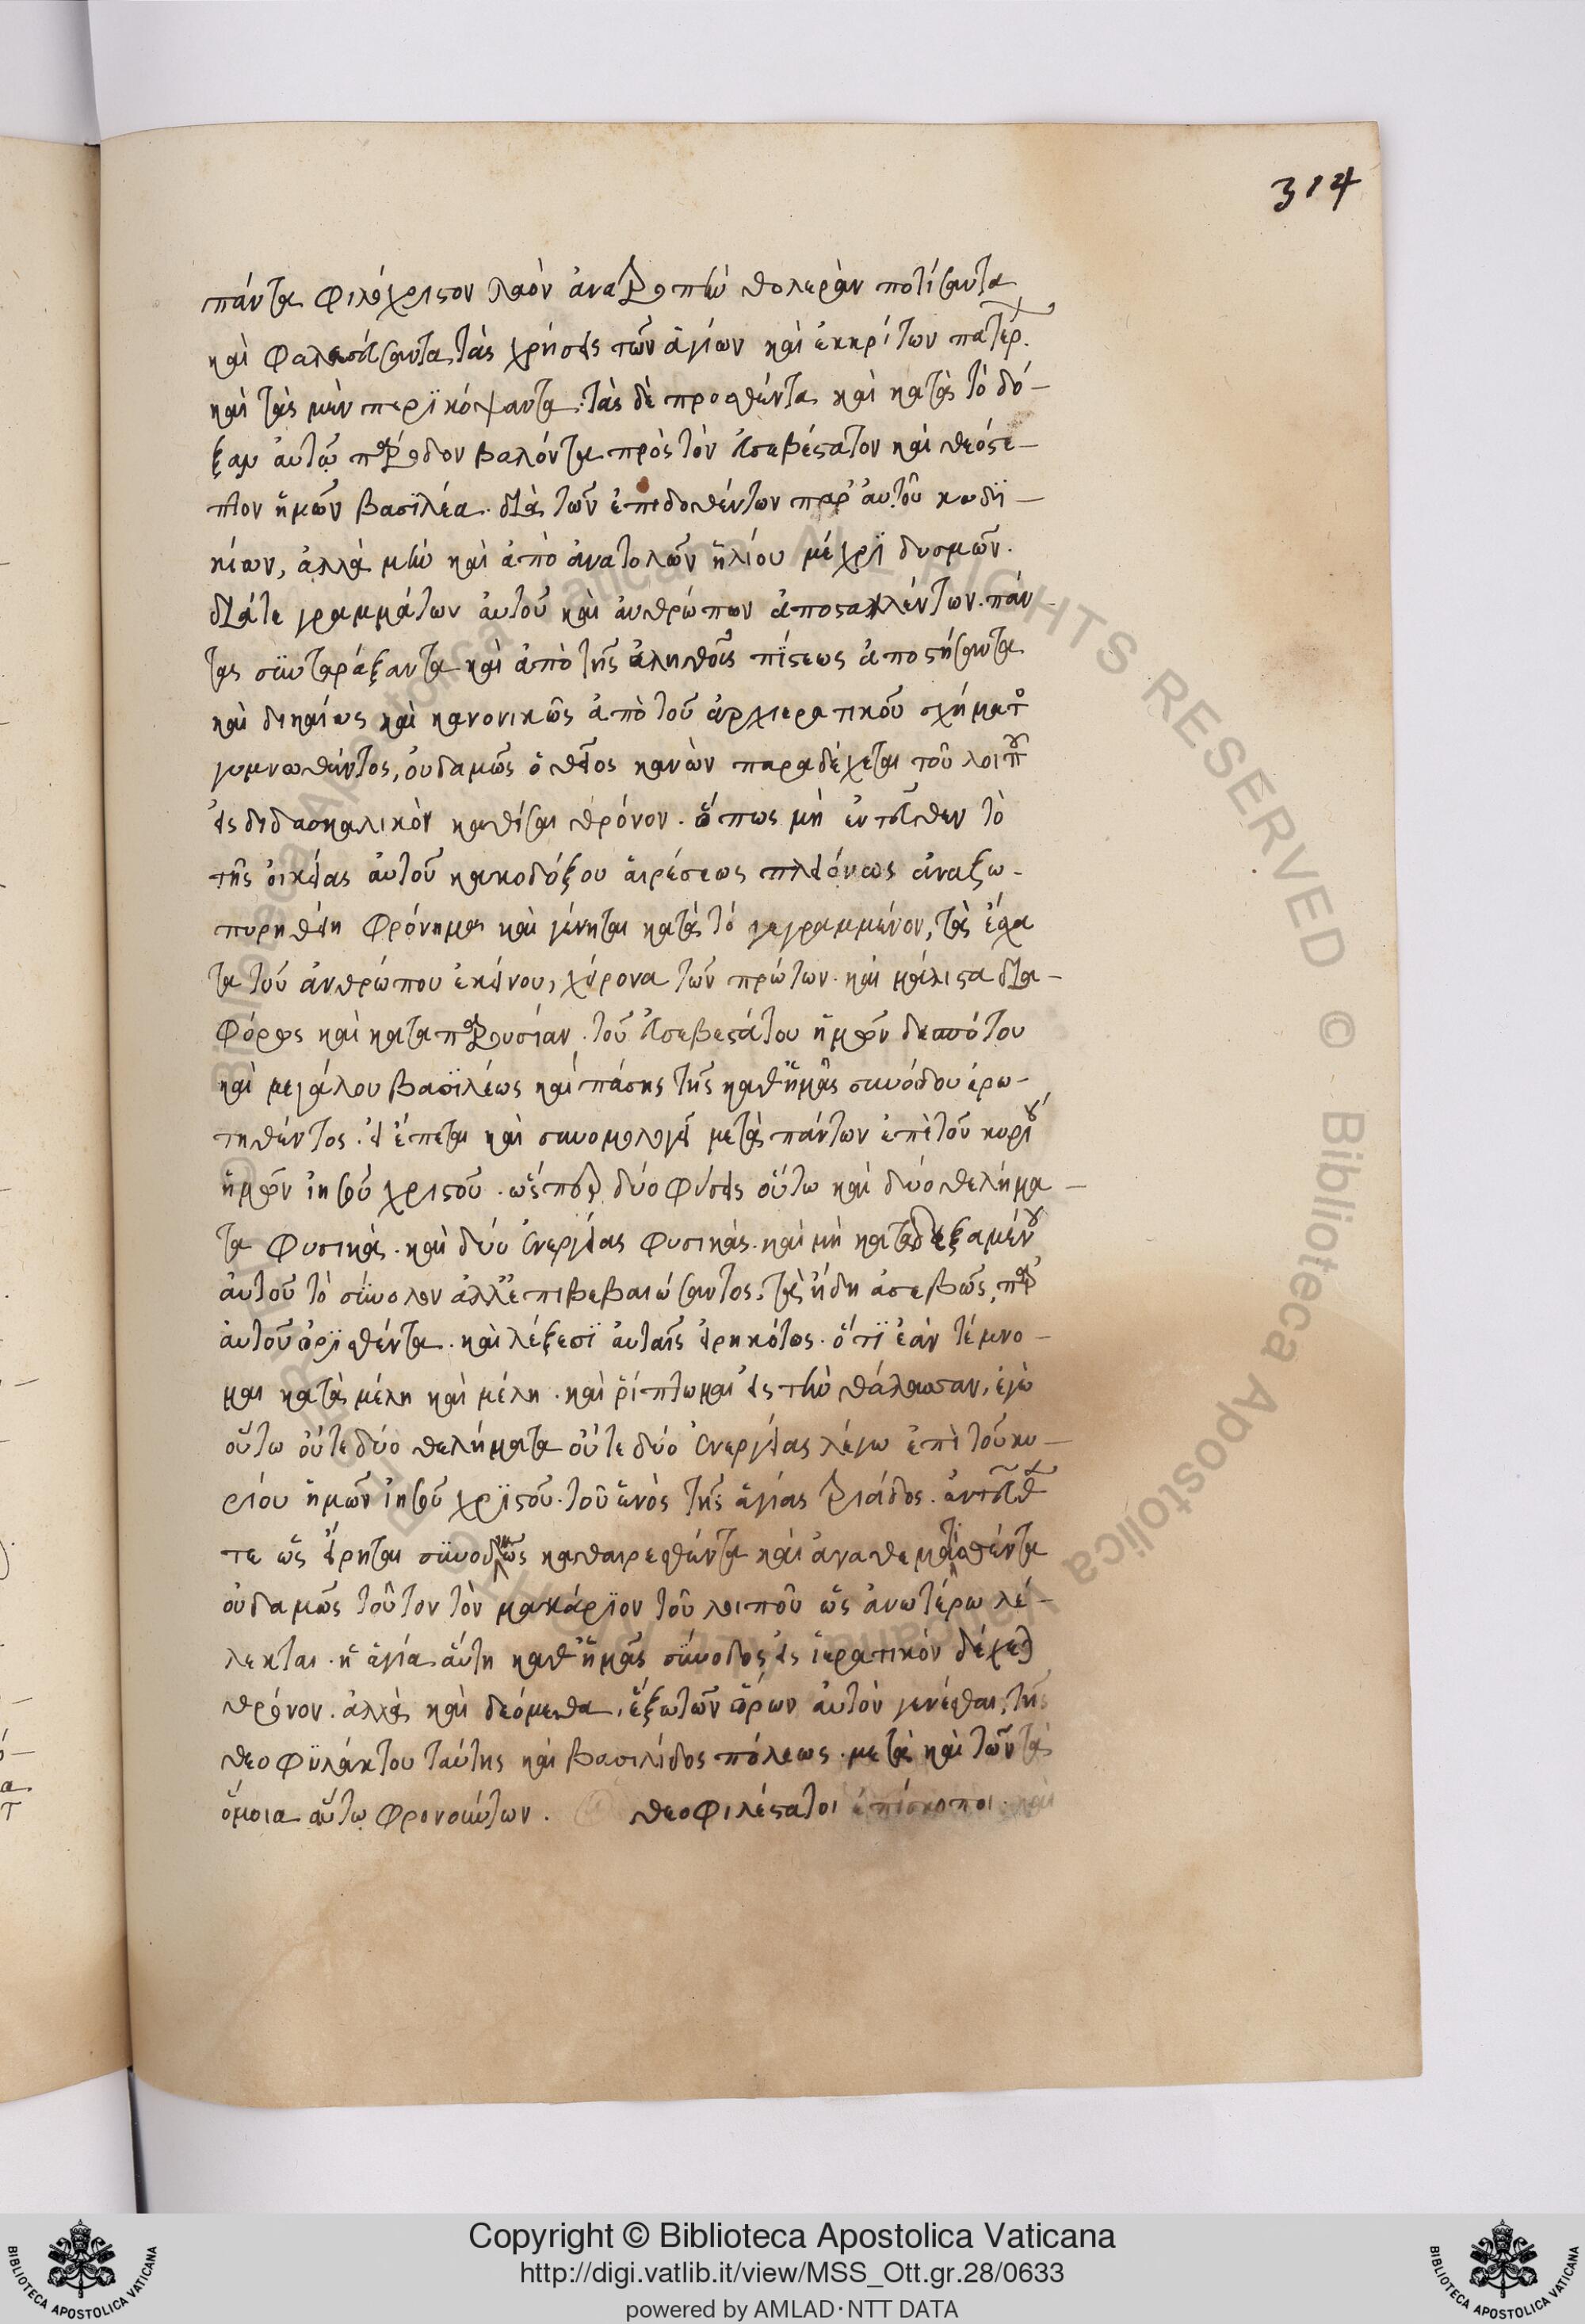 314
πάντα φιλόχριστον λαὸν ἀνατροπὴν θολερὰν ποτίσαντα
καὶ φαλσεύσαντα τὰς χρήσεις τῶν ἁγίων καὶ ἐκκρίτων πατέρ.
καὶ τὰς μὲν περϊκόψαντα. τὰς δὲ προσθέντα καὶ κατὰ τὸ δό-
ξαν αὐτῷ βαλόντα πρὸς τὸν εὐσεβέστατον καὶ θεόστε-
πτον ἡμῶν βασϊλέα. διὰ τῶν ἐπιδοθέντων παρ' αὐτοῦ κωδϊ-
κίων, ἀλλὰ μὴν καὶ ἀπὸ ἀνατολῶν ἡλίου μέχρϊ δυσμῶν.
διάτε γραμμάτων αὐτοῦ καὶ ἀνθρώπων ἀποσταλέντων. πάν-
τας σϋνταράξαντα καὶ ἀπὸ τῆς ἀληθοῦς πίστεως ἀποστήσαντα
καὶ δικαίως καὶ κανονικῶς ἀπὸ τοῦ ἀρχιερατικοῦ σχήματο
γυμνωθέντος, οὐδαμῶς ὁ θεῖος κανὼν παραδέχεται τοῦ λοιποῦ
εἰς διδασκαλικὸν καθίσαι θρόνον. ὅπως μὴ ἐντεῦθεν τὸ
τῆς οἰκείας αὐτοῦ κακοδόξου αἱρέσεως πλειόνως ἀναζω-
πυρηθείη φρόνημα καὶ γένηται κατὰ τὸ γεγραμμένον, τὰ ἔσχα
τα τοῦ ἀνθρώπου ἐκείνου, χείρονα τῶν πρώτων. καὶ μάλιστα δια-
φόρως καὶ κατα παρουσίαν. τοῦ εὐσεβεστάτου ἡμῶν δεσπότου
καὶ μεγάλου βασϊλέως καὶ πάσης τῆς καθ' ἡμᾶς συνόδου ἐρω-
τηθέντος. εἰ ἕπεται καὶ συνομολογεῖ μετὰ πάντων ἐπὶ τοῦ κυρίου
ἡμῶν ἰησοῦ χριστοῦ. ὥσπερ δύο φύσεις οὕτω καὶ δύο θελήμα-
τα φυσικά. καὶ δύο ἐνεργείας φυσικάς. καὶ μὴ καταδεξαμένου
αὐτοῦ τὸ σϋνολον ἀλλ' ἐπιβεβαιώσαντος. τὰ ἤδη ἀσεβῶς, παρ
αὐτοῦ ὁρϊσθέντα. καὶ λέξεσϊ αὐταῖς εἰρηκότος. ὅτϊ ἐὰν τέμνο-
μαι κατὰ μέλη καὶ μέλη. καὶ ῥίπτωμαι εἰς τὴν θάλασσαν, ἐγὼ
οὕτω οὔτε δύο θελήματα οὔτε δύο ἐνεργείας λέγω ἐπὶ τοῦ κυ-
ρίου ἡμῶν ἰησοῦ χρϊστοῦ. τοῦ ἑνὸς τῆς ἁγίας τριάδος. ἐντεῦθεν
τε ὡς εἴρηται σϋνοδικῶς καθαιρεθέντα καὶ ἀναθεματϊσθέντα
οὐδαμῶς τοῦτον τὸν μακάρϊον τοῦ λοιποῦ ὡς ἀνωτέρω λέ-
λεκται. ἡ ἁγία αὕτη καθ' ἡμᾶς σϋνοδος εἰς ἱερατικὸν δέχεται
θρόνον. ἀλλὰ καὶ δεόμεθα, ἔξω τῶν ὅρων αὐτὸν γενέσθαι, τῆς
θεοφϋλάκτου ταύτης καὶ βασιλίδος πόλεως. μετὰ καὶ τῶν τὰ
ὅμοια αὐτῷ φρονούντων. θεοφιλέστατοι ἐπίσκοποι. καὶ
Copyright © Biblioteca Apostolica Vaticana
http://digi.vatlib.it/view/MSS_Ott.gr.28/0633
powered by AMLAD·NTT DATA